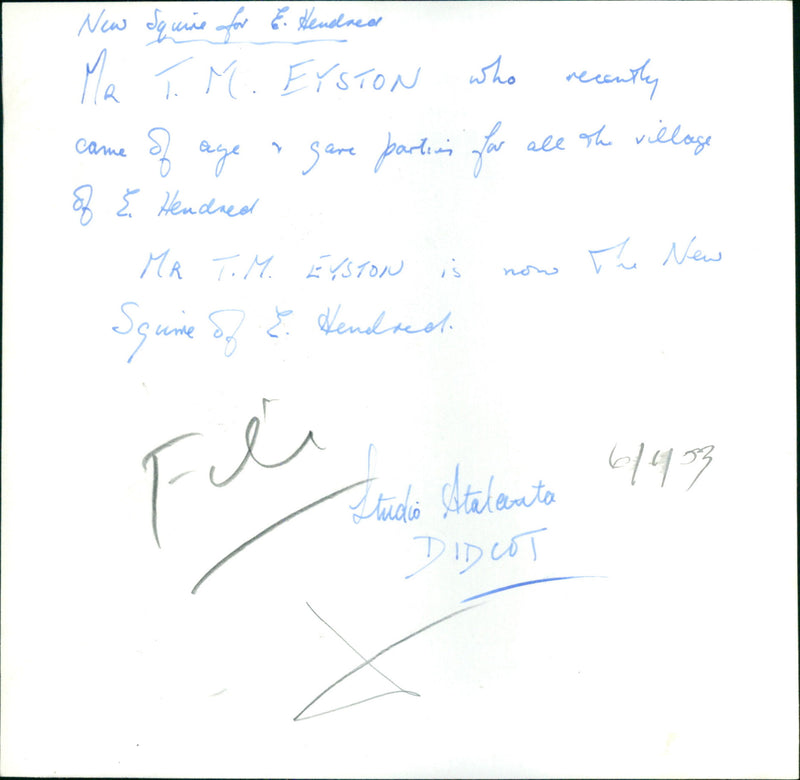 New Squire for E. Hendred
MR T. M. EYSTON who recently
came of age & gave parties for all the village
of E. Hendred
MR T.M. EYSTON is now The New
Squire of E. Hendred.
File
6/4/53
Studio Atalanta
DIDCOT